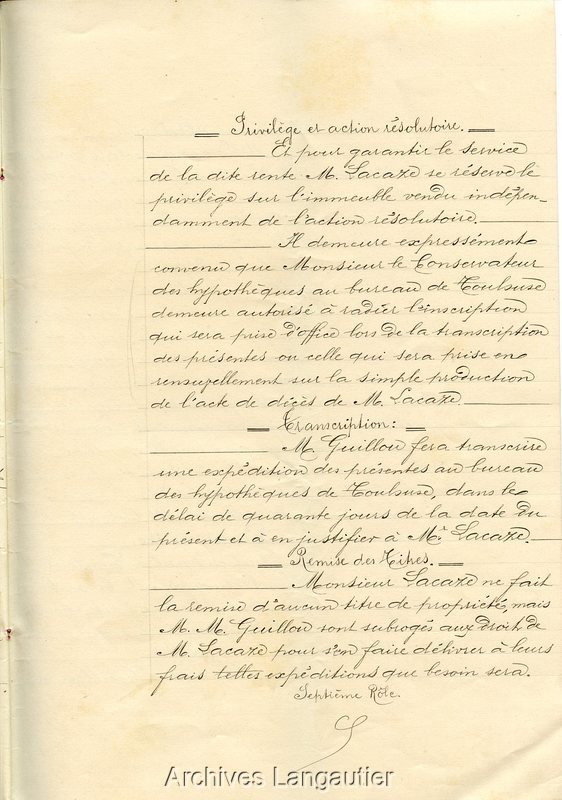 Privilège et action résolutoire.
Et pour garantir le service
de la dite rente M. Lacaze se réserve le
privilège sur l'immeuble vendu indépen-
damment de l'action résolutoire.
Il demeure expressément
convenu que Monsieur le Conservateur
des hypothèques au bureau de Toulouse
demeure autorisé à radier l'inscription
qui sera prise d'office lors de la transcription
des présentes ou celle qui sera prise en
renouvellement sur la simple production
de l'acte de décès de M. Lacaze.
Transcription :
M. Guillou fera transcrire
une expédition des présentes au bureau
des hypothèques de Toulouse, dans le
délai de quarante jours de la date du
présent et à en justifier à Mr. Lacaze.
Remise des Titres.
Monsieur Lacaze ne fait
la remise d'aucun titre de propriété, mais
M. M. Guillou sont subrogés aux droit de
M. Lacaze pour s'en faire délivrer à leurs
frais telles expéditions que besoin sera.
Septième Rôle.
Archives Langautier